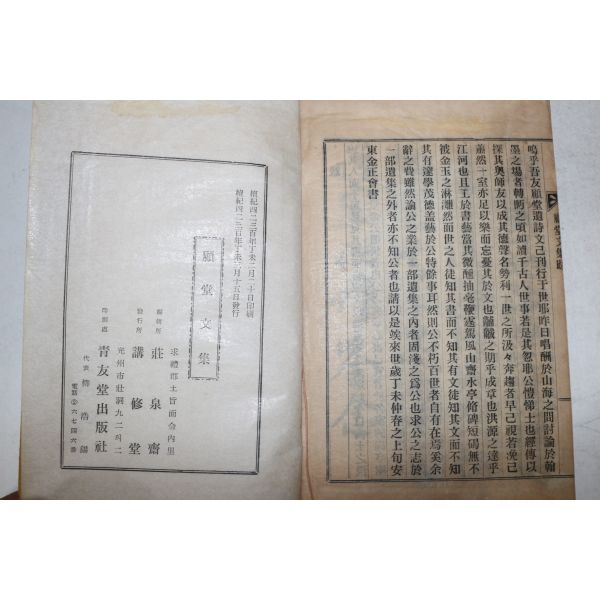 顧堂文集跋
嗚乎吾友顧堂遺詩文已刊行于世耶昨日唱酬於山海之間討論於翰
墨之場者轉眄之頃如讀千古人世事若是其忽耶公愷悌士也經傳以
探其奧師友以成其德聲名勢利一世之所汲々奔趨者早已視若浼己
蕭然一室亦足以樂而忘憂其於文也黼黻之期乎成章也洪源之達乎
江河也且工於書藝當其微醺抽毫鞭霆駕風山齋水亭脩碑短碣無不
被金玉之淋灕然而世之人徒知其書而不知其有文徒知其文而不知
其有邃學茂德盖於公特餘事耳然則公不朽百世者自有在焉奚余
辭之費雖然論公之業於一部遺集之內者固淺之爲公也求公之志於
一部遺集之外者亦不知公者也請以是竢來世歲丁未仲春之上旬安
東金正會書
檀紀四二三百年丁未二月二十日印刷
檀紀四二三百年丁未二月十五日發行
顧堂文集
求禮郡土旨面金內里
編輯所 莊泉齋
發行所 講修堂
光州市壯洞九二의二
印刷處 青友堂出版社
代表
電話②六七四六番